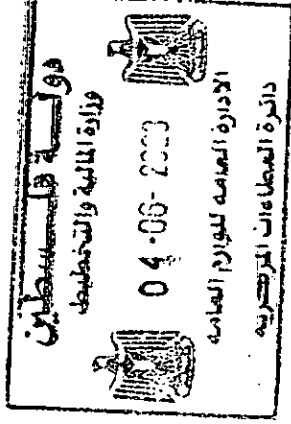 دولة فلسطين
وزارة المالية والتخطيط
04-06-2023
الادارة العامه للوازم العامه
دائرة العطاءات المركزيه